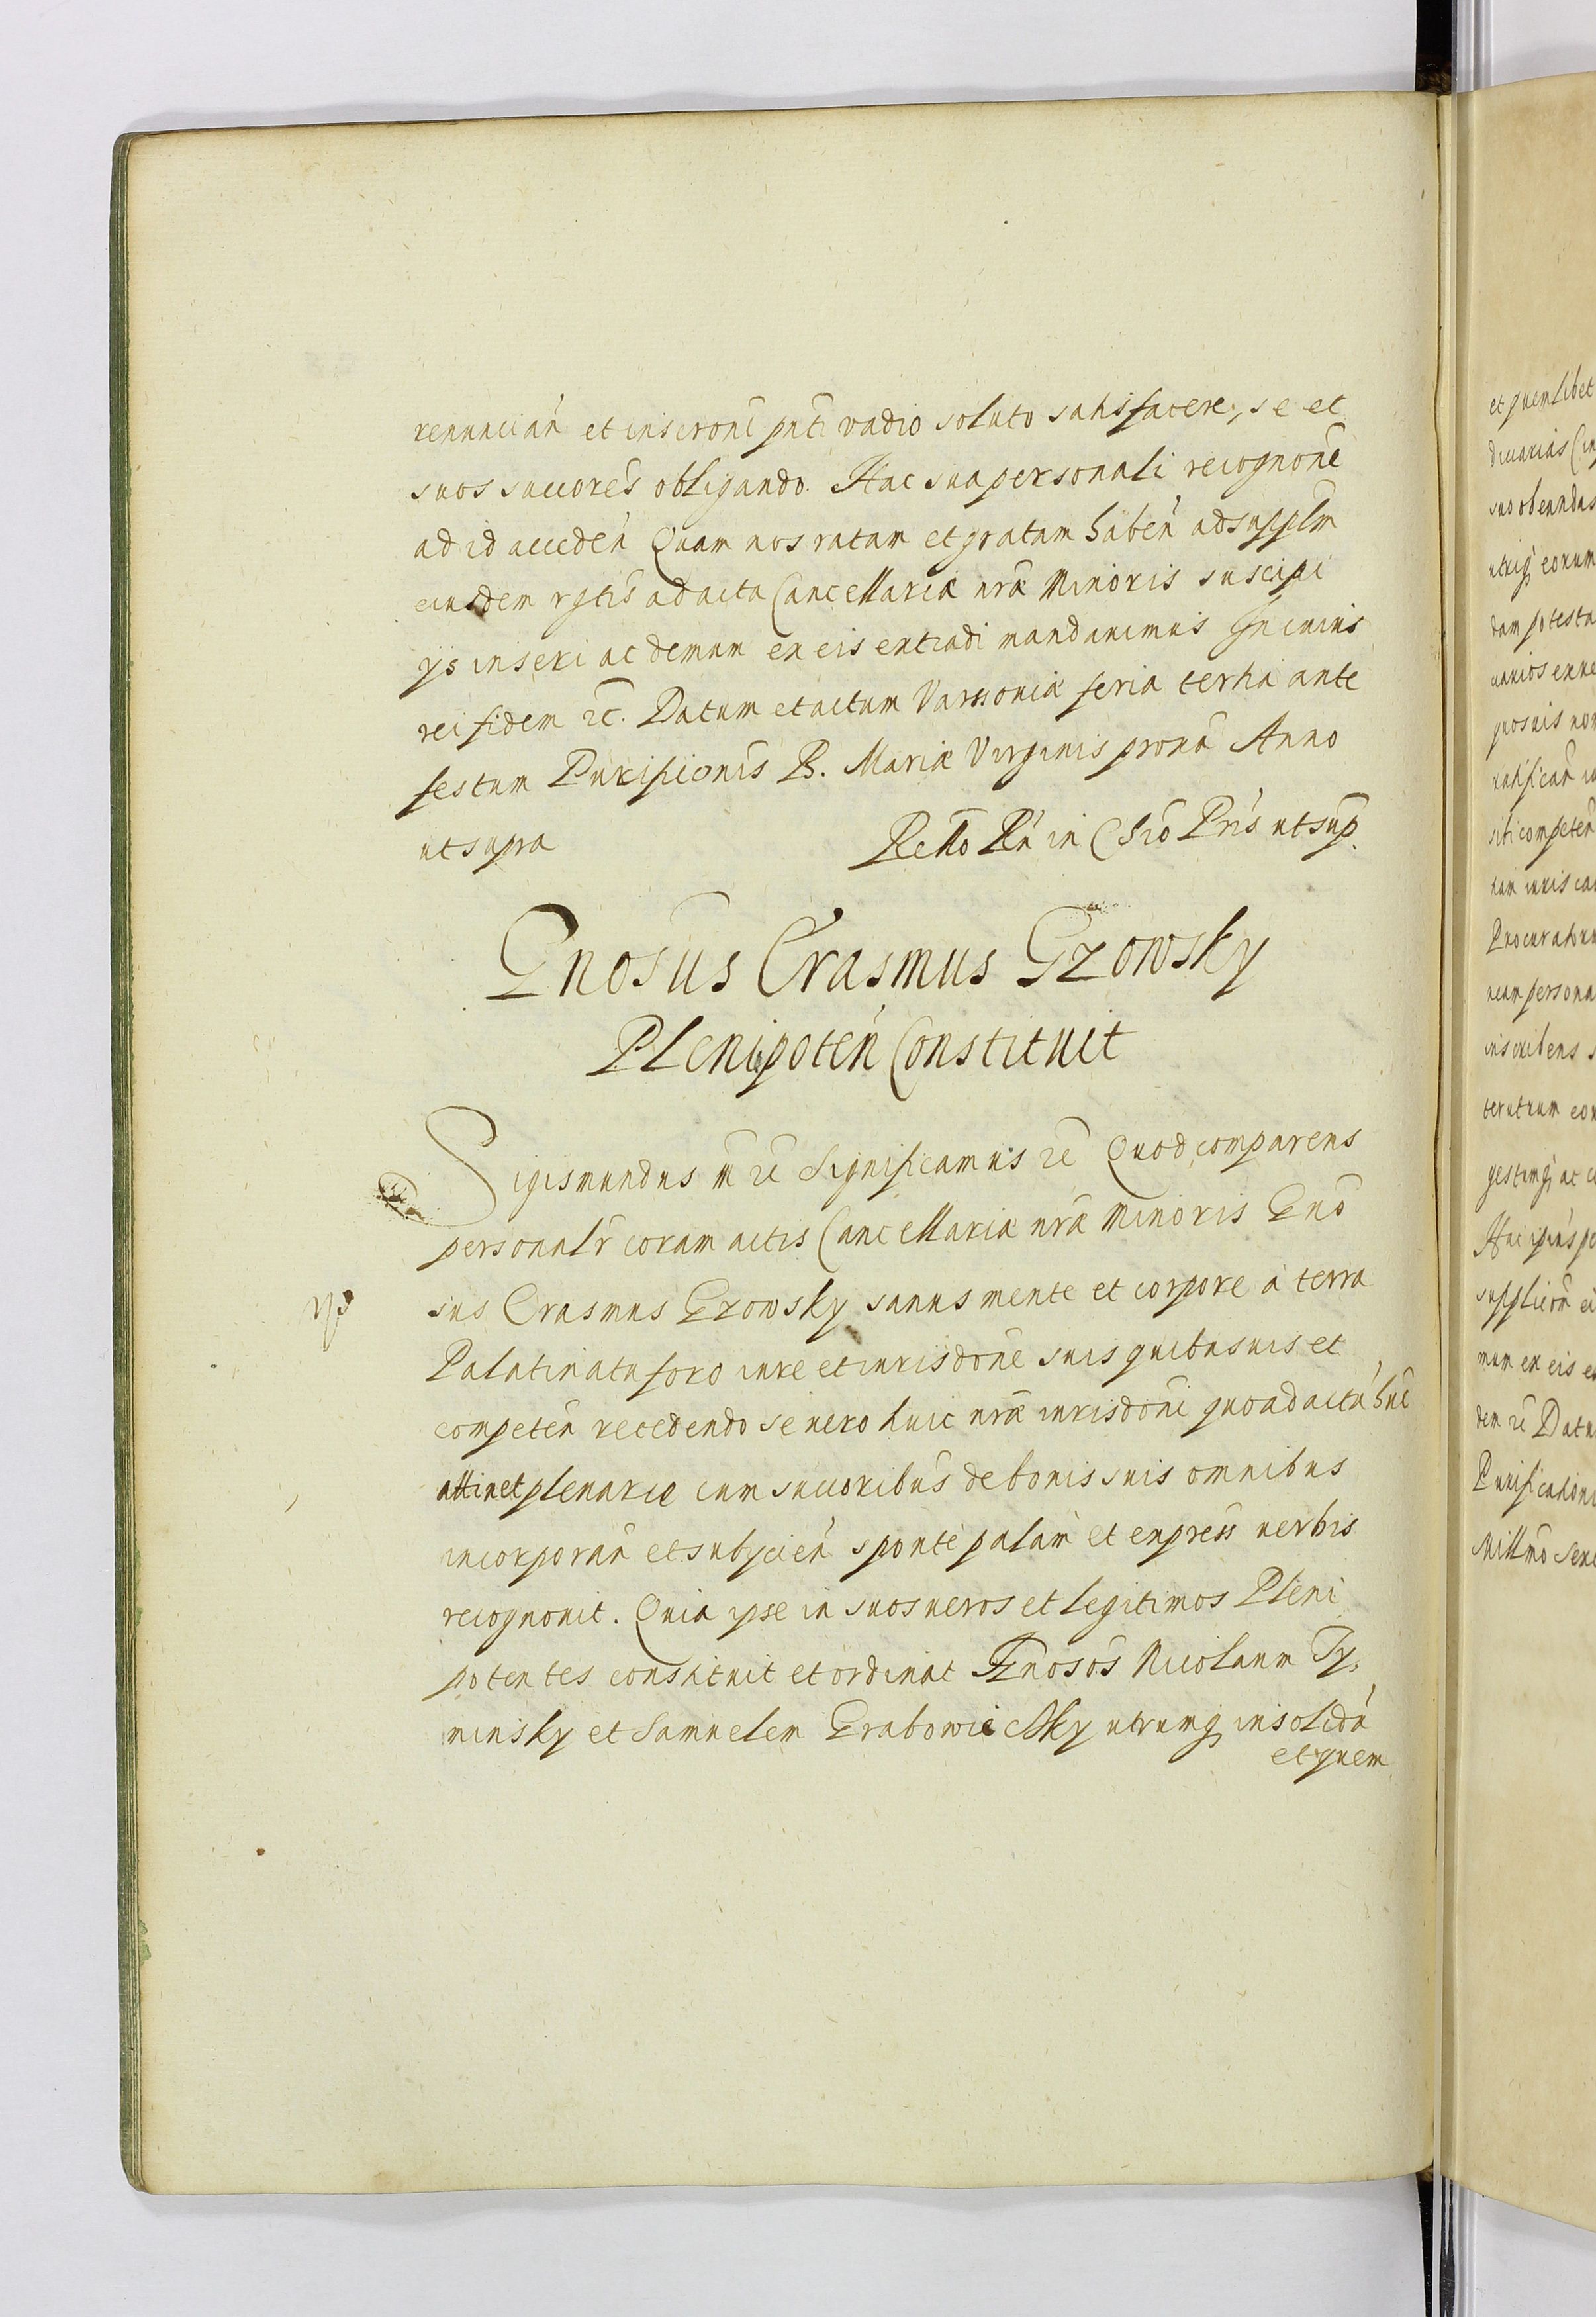 renuncian̄ et inscroni pnti vadio soluto satisfacere, se et
suos succores obligando. Hac sua personali recognone
ad id acceden̄ Quam nos ratam et gratam haben̄ ad supplm
eiusdem rgtis ad acta Cancellariæ nræ Minoris suscipi
ijs inseri ac demum ex eis extradi mandavimus In cuius
rei fidem etc. Datum et actum Varssoviæ feria tertia ante
festum Purificionis B. Mariæ Virginis proxa Anno
ut supra
Rello Rn in Csio Pris ut sup.
Gnosus Erasmus Gzowsky
Plenipoten̄ Constituit
Sigismundus III etc Significamus etc Quod comparens
personalr coram actis Cancellariæ nræ Minoris Gno
sus Erasmus Gzowsky sanus mente et corpore à terra
Palatinatu foro iure et iurisdone suis quibusuis et
competen̄ recedendo se uero huic nræ iurisdoni quo ad actu hūc
attinet plenarie cum succoribus de bonis suis omnibus
incorporan̄ et subijcien̄ sponte palam et express uerbis
recognouit. Quia ipse in suos ueros et legitimos Pleni
potentes constituit et ordinat Gnosos Nicolaum Ty,
minsky et Samuelem Grabowieckky utrumq insolidu
et quem
et quemlibet
suo obeundas
utriq eorum
dam potesta
quosuis non
ratifican̄
sibi competen̄
Procurator
neam persona
inscribens
terutrum eor
gestumq ac
Hac ipius pe
supplicon ei
mum ex eis e
dem etc Datu
Purificationi
Millmo Sexc